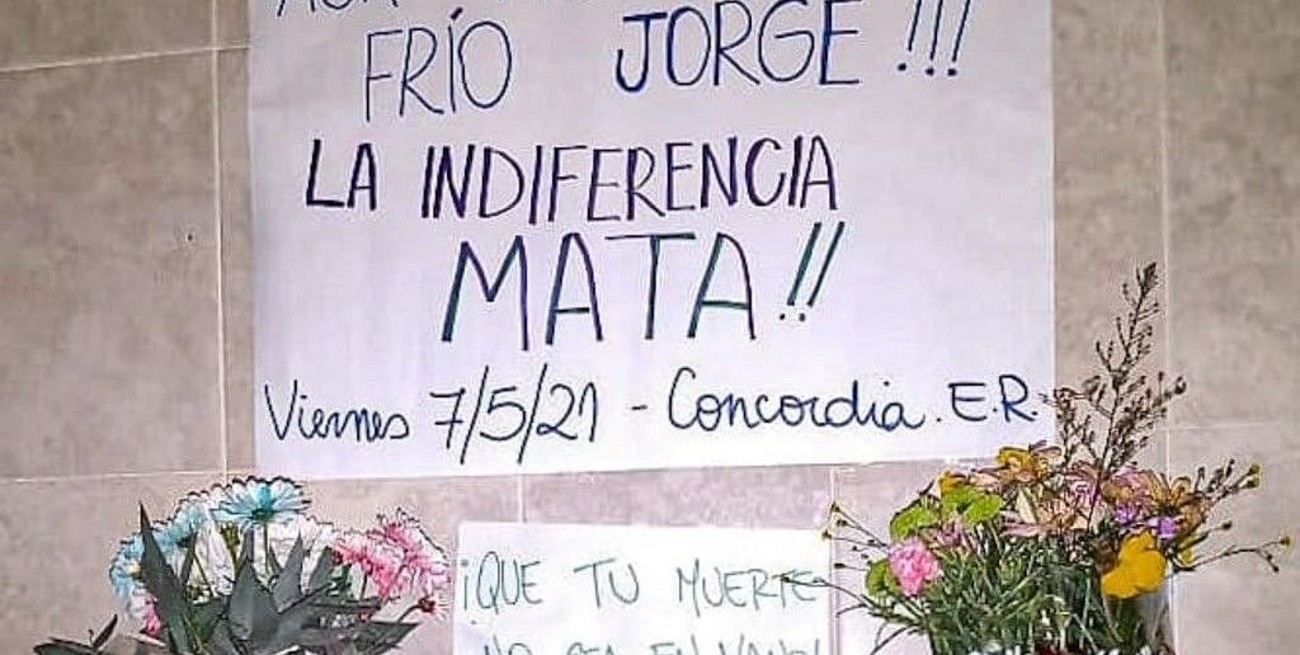 FRÍO JORGE!!!
LA INDIFERENCIA
MATA!!
Viernes 7/5/21 - Concordia. E.R.
¡QUE TU MUERTE
NO SEA EN VANO!